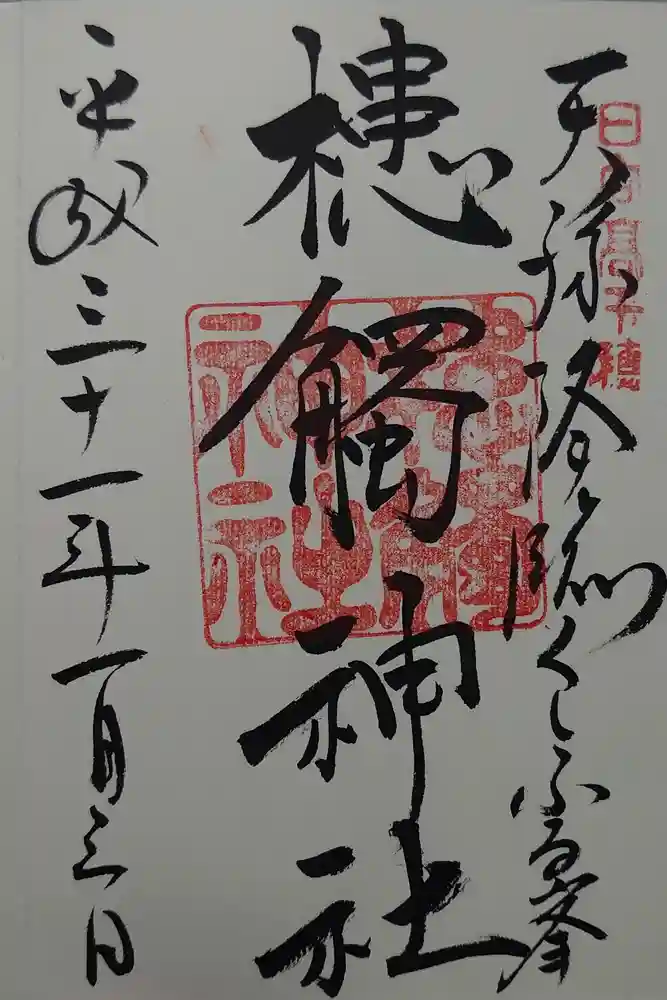 日向高千穂
天孫降臨くしふる峯
槵觸神社
平成三十一年一月三日